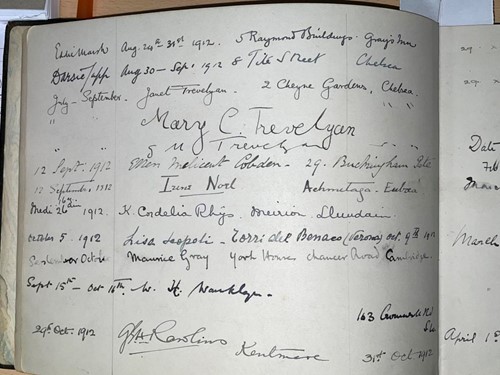 Eddie Marsh Aug. 24th 31st 1912. 5 Raymond Buildings. Gray's Inn
Darsie Japp Aug 30 - Sep. 1912 8 Tite Street Chelsea
July - September. Janet Trevelyan. 2 Cheyne Gardens, Chelsea.
" " Mary C. Trevelyan " "
G M Trevelyan
12 Sept. 1912 Ellen Melicent Cobden - 29. Buckingham
12 September 1912 Irene Noel Achmetaga. Euboea
26th 1912. K. Cordelia Rhys. Meirion. Llundain.
October 5. 1912 Lisa Leopoli - Torri del Benaco (Verona) Oct. 9th 1912
September Maurice Gray York House Chaucer Road Cambridge.
Sept 15th - Oct 16th. W. H.
163 Cromwell Rd
29th Oct. 1912 Rawlins Kentmere 31st Oct 1912
29
Date
Feb
March
April 1st